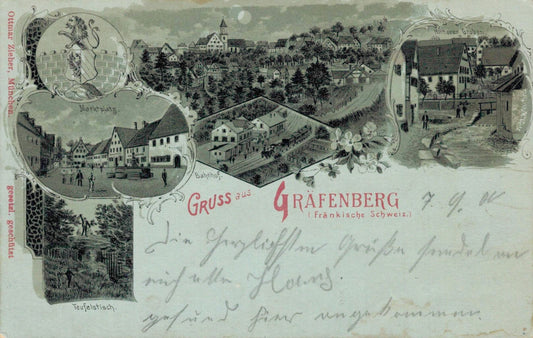 Ottmar Zieher, München.
gesetzl. geschützt
Marktplatz.
Bahnhof.
Teufelstisch.
Gruss aus Gräfenberg
(Fränkische Schweiz.)
7. 9.
Die herzlichsten Grüße sendet
gesund hier angekommen.